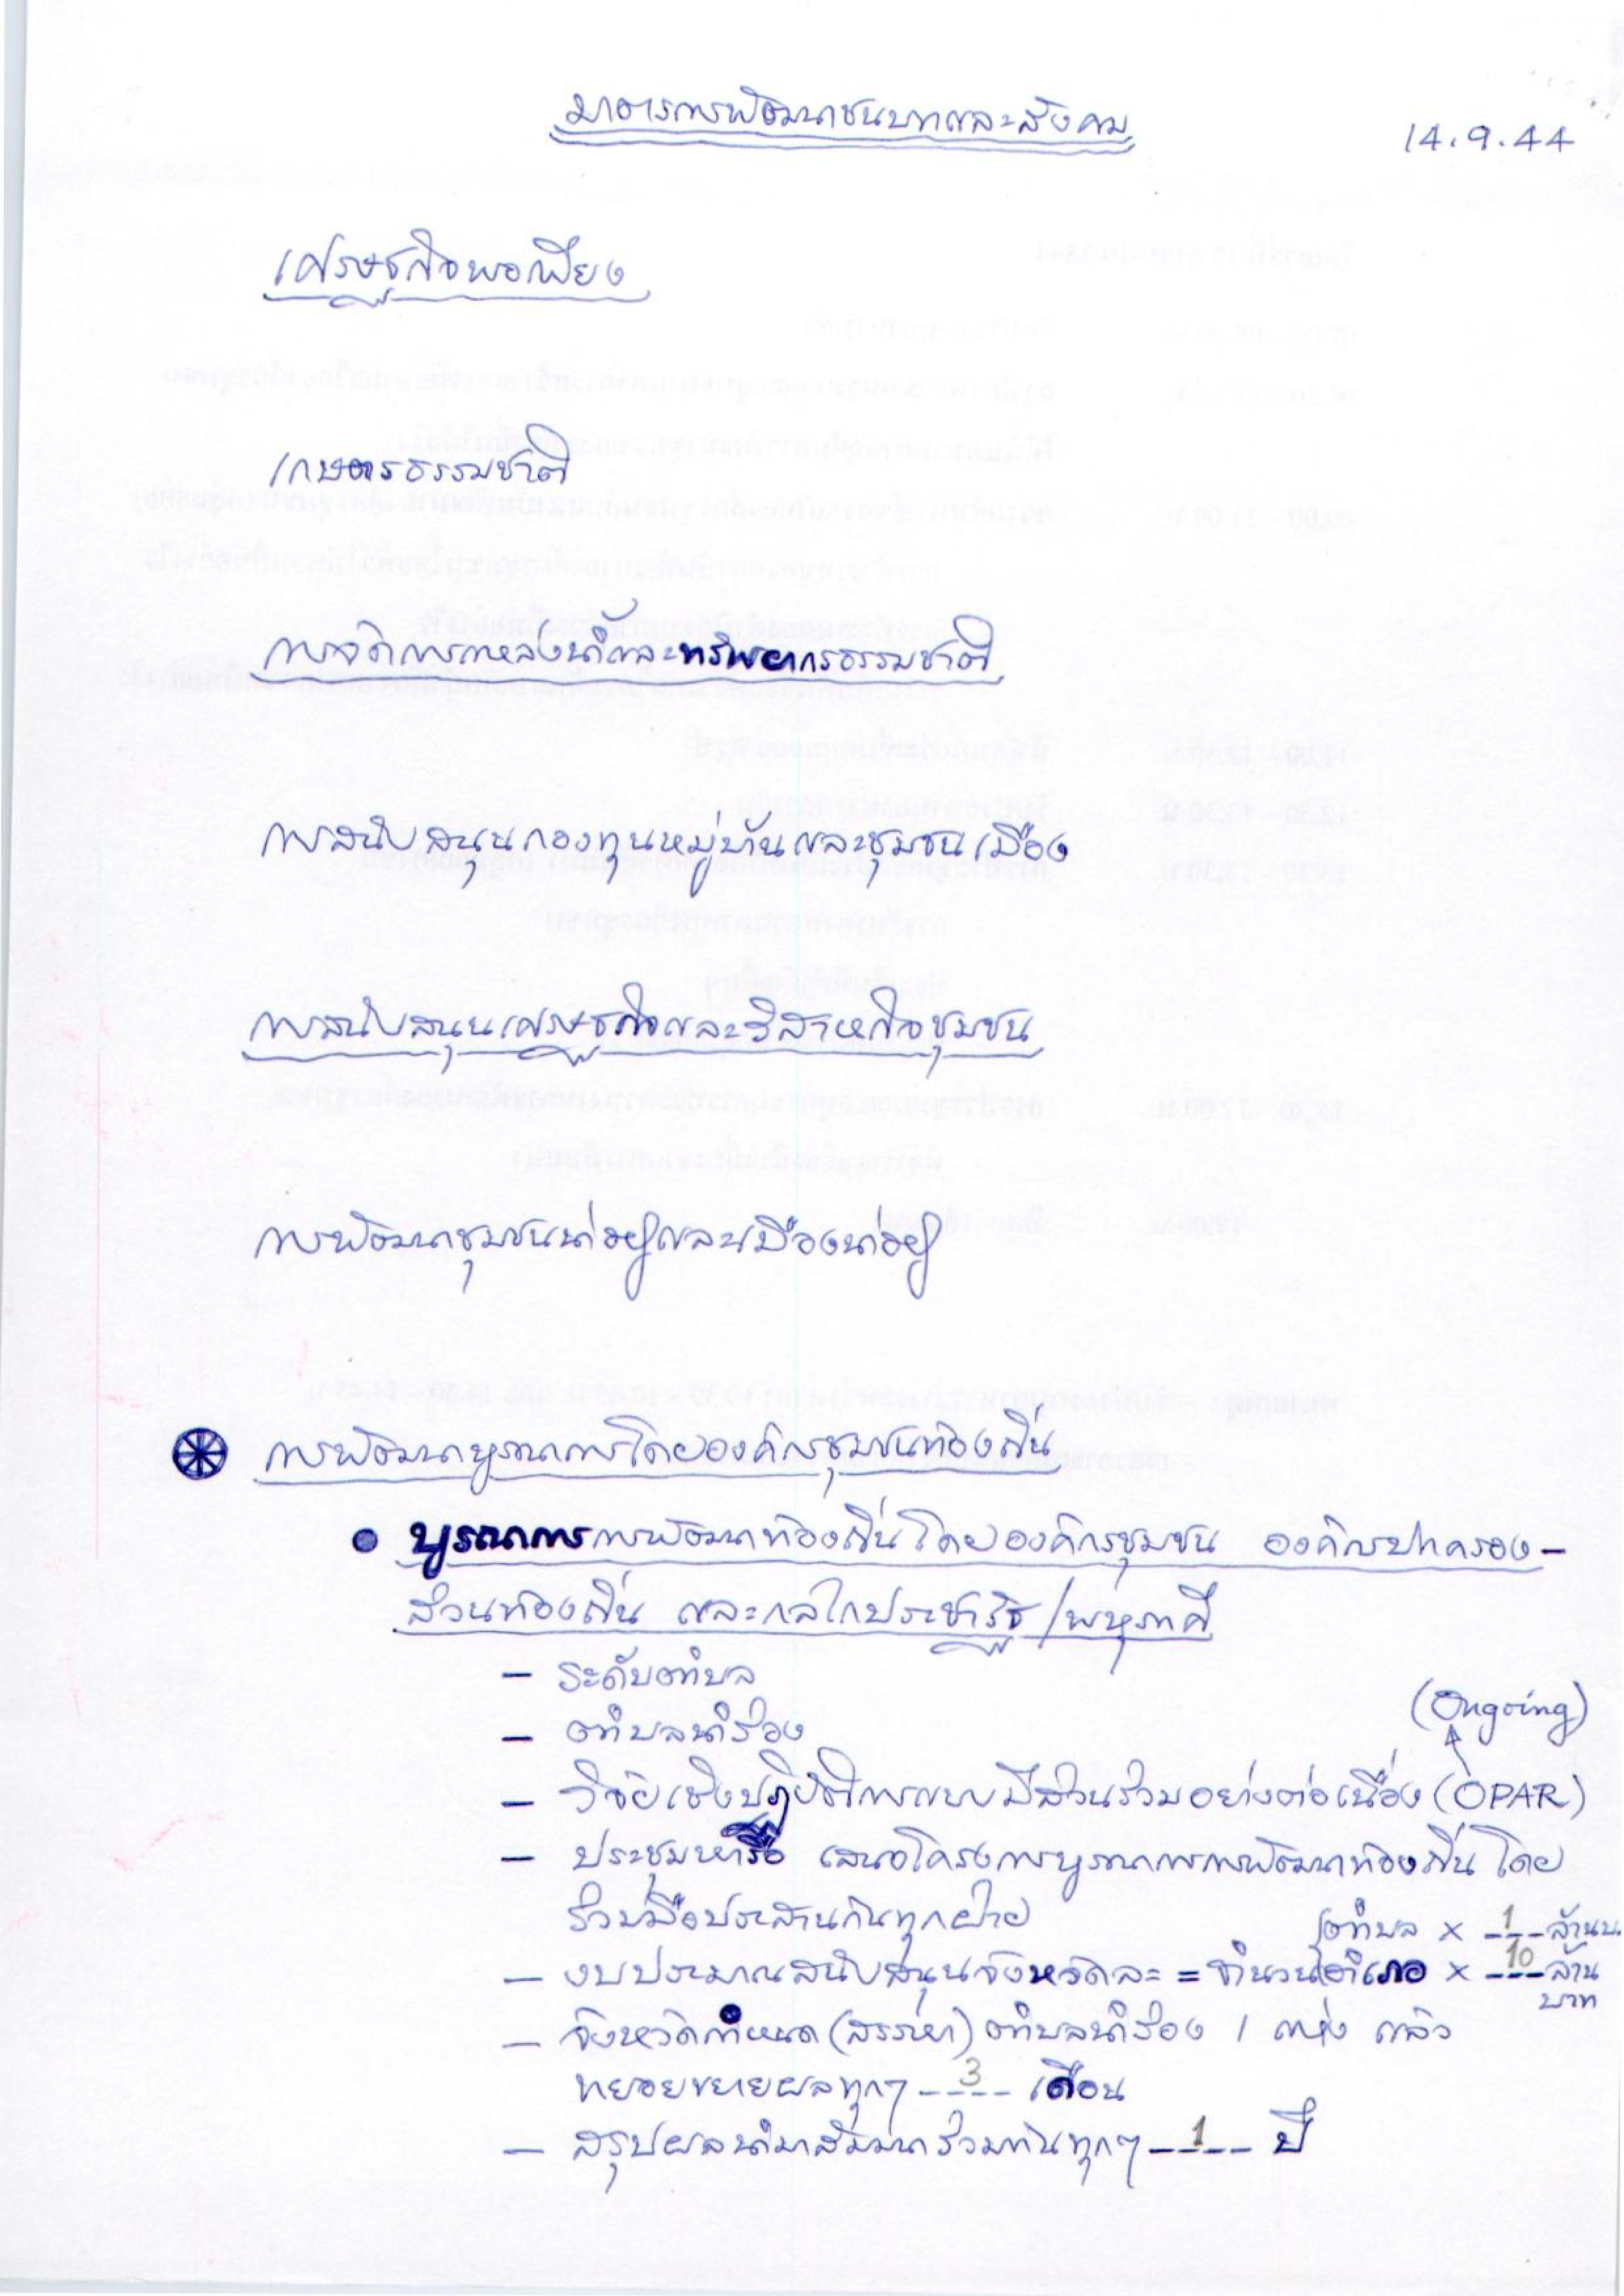 มาตรการพัฒนาชนบทและสังคม
14.9.44
เศรษฐกิจพอเพียง
เกษตรธรรมชาติ
การจัดการแหล่งน้ำและทรัพยากรธรรมชาติ
การสนับสนุนกองทุนหมู่บ้านและชุมชนเมือง
การสนับสนุนเศรษฐกิจและวิสาหกิจชุมชน
การพัฒนาชุมชนน่าอยู่และเมืองน่าอยู่
การพัฒนาบูรณาการโดยองค์กรชุมชนท้องถิ่น
• บูรณาการการพัฒนาท้องถิ่นโดยองค์กรชุมชน องค์กรปกครอง-
ส่วนท้องถิ่น และกลไกประชารัฐ/พหุภาคี
- ระดับตำบล
- ตำบลนำร่อง
(Ongoing)
- วิจัยเชิงปฏิบัติการแบบมีส่วนร่วมอย่างต่อเนื่อง (OPAR)
- ประชุมหารือ เสนอโครงการบูรณาการการพัฒนาท้องถิ่น โดย
ร่วมมือประสานกันทุกฝ่าย
ตำบล × 1 ล้านบ.
- งบประมาณสนับสนุนจังหวัดละ = จำนวนอำเภอ × 10 ล้าน
บาท
- จังหวัดกำหนด (สรรหา) ตำบลนำร่อง 1 แห่ง แล้ว
ทยอยขยายผลทุกๆ ---3--- เดือน
- สรุปผลนำมาสัมมนาร่วมกันทุกๆ ---1--- ปี